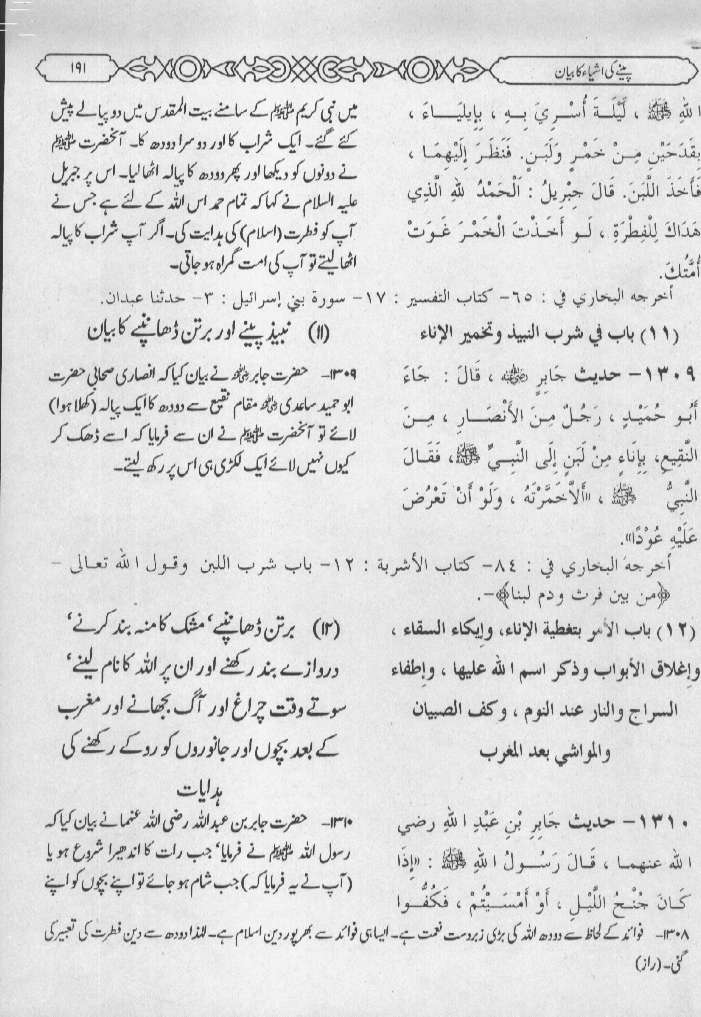 پینے کی اشیاء کا بیان
۱۹۱
اللهِ ﷺ ، لَيْلَةَ أُسْرِيَ بِهِ ، بِإِيلِيَاءَ ،
بِقَدَحَيْنِ مِنْ خَمْرٍ وَلَبَنٍ. فَنَظَرَ إِلَيْهِمَا ،
فَأَخَذَ اللَّبَنَ. قَالَ جِبْرِيلُ : اَلْحَمْدُ لِلهِ الَّذِي
هَدَاكَ لِلْفِطْرَةِ ، لَو أَخَذْتَ الْخَمْرَ غَوَتْ
أُمَّتُكَ.
میں نبی کریم ﷺ کے سامنے بیت المقدس میں دو پیالے پیش
کئے گئے۔ ایک شراب کا اور دوسرا دودھ کا۔ آنحضرت ﷺ
نے دونوں کو دیکھا اور پھر دودھ کا پیالہ اٹھا لیا۔ اس پر جبریل
علیہ السلام نے کہا کہ تمام حمد اس اللہ کے لئے ہے جس نے
آپ کو فطرت (اسلام) کی ہدایت کی۔ اگر آپ شراب کا پیالہ
اٹھا لیتے تو آپ کی امت گمراہ ہو جاتی۔
أخرجه البخاري في : ٦٥- كتاب التفسير : ١٧- سورة بني إسرائيل : ٣- حدثنا عبدان.
(١١) باب في شرب النبيذ وتخمير الإناء
(۱۱) نبیذ پینے اور برتن ڈھانپنے کا بیان
١٣٠٩- حديث جَابِرٍ ، قَالَ : جَاءَ
أَبُو حُمَيْدٍ ، رَجُلٌ مِنَ الْأَنْصَارِ ، مِنَ
النَّقِيعِ، بِإِنَاءٍ مِنْ لَبَنٍ إِلَى النَّبِيِّ ﷺ، فَقَالَ
النَّبِيُّ ﷺ ، «أَلَا خَمَّرْتَهُ ، وَلَوْ أَنْ تَعْرُضَ
عَلَيْهِ عُوْدًا».
۱۳۰۹- حضرت جابر نے بیان کیا کہ انصاری صحابی حضرت
ابو حمید ساعدی مقام نقیع سے دودھ کا ایک پیالہ (کھلا ہوا)
لائے تو آنحضرت ﷺ نے ان سے فرمایا کہ اسے ڈھک کر
کیوں نہیں لائے ایک لکڑی ہی اس پر رکھ لیتے۔
أخرجه البخاري في : ٨٤- كتاب الأشربة : ١٢- باب شرب اللبن وقول الله تعالى -
﴿من بين فرث ودم لبنا﴾-.
(١٢) باب الأمر بتغطية الإناء، وإيكاء السقاء ،
وإغلاق الأبواب وذكر اسم الله عليها ، وإطفاء
السراج والنار عند النوم ، وكف الصبيان
والمواشي بعد المغرب
(۱۲) برتن ڈھانپنے‘ مشک کا منہ بند کرنے‘
دروازے بند رکھنے اور ان پر اللہ کا نام لینے‘
سوتے وقت چراغ اور آگ بجھانے اور مغرب
کے بعد بچوں اور جانوروں کو روکے رکھنے کی
ہدایات
١٣١٠- حديث جَابِرِ بْنِ عَبْدِ اللهِ رضي
الله عنهما ، قَالَ رَسُولُ اللهِ ﷺ : «إِذَا
كَانَ جُنْحُ اللَّيْلِ ، أَوْ أَمْسَيْتُمْ ، فَكُفُّوا
۱۳۱۰- حضرت جابر بن عبداللہ رضی اللہ عنہما نے بیان کیا کہ
رسول اللہ ﷺ نے فرمایا‘ جب رات کا اندھیرا شروع ہو یا
(آپ نے یہ فرمایا کہ) جب شام ہو جائے تو اپنے بچوں کو اپنے
۱۳۰۸- فوائد کے لحاظ سے دودھ اللہ کی بڑی زبردست نعمت ہے۔ ایسا ہی فوائد سے بھرپور دین اسلام ہے۔ لہٰذا دودھ سے دین فطرت کی تعبیر کی
گئی۔ (راز)